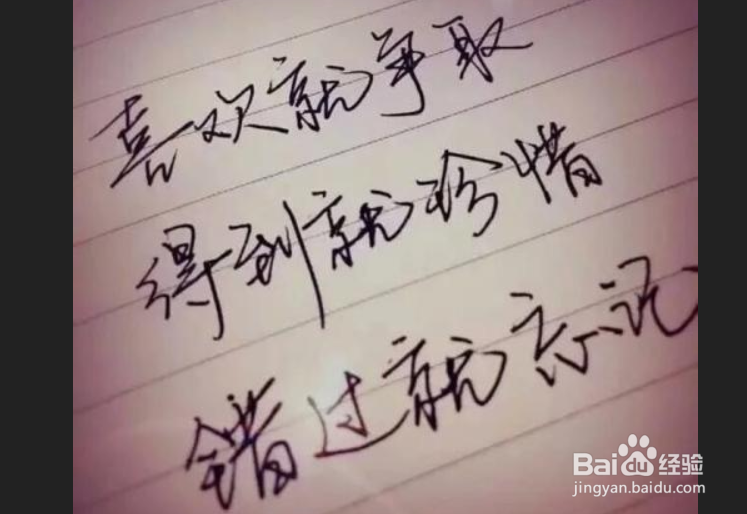 喜欢就争取
得到就珍惜
错过就忘记
Baidu经验
jingyan.baidu.com